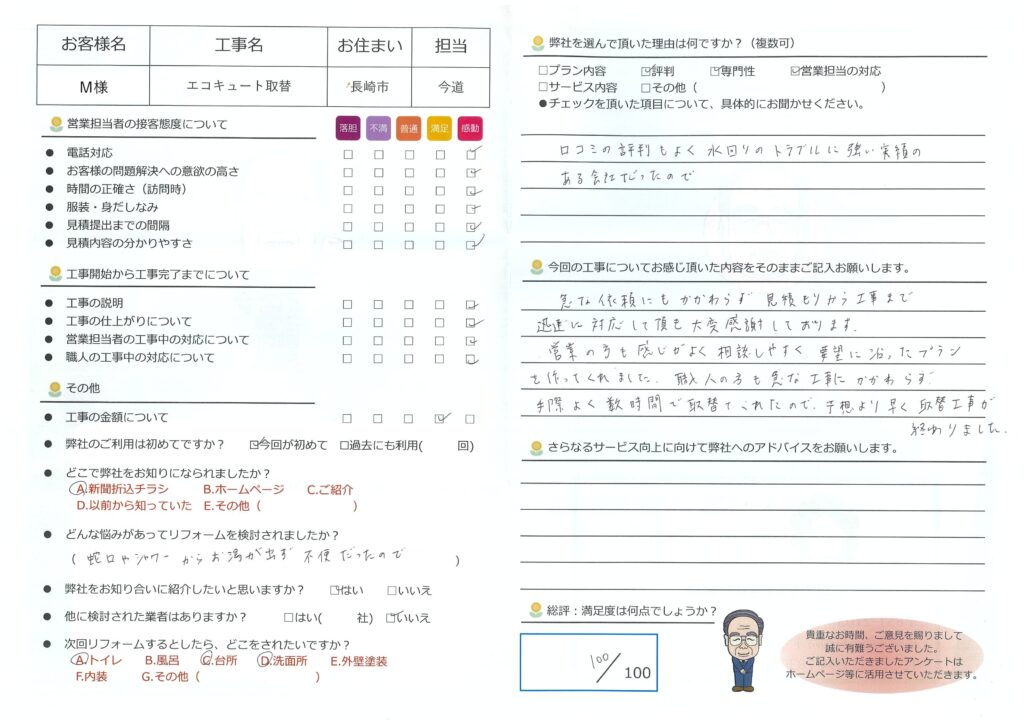 お客様名 工事名 お住まい 担当
M様 エコキュート取替 長崎市 今道
営業担当者の接客態度について
落胆 不満 普通 満足 感動
● 電話対応 □ □ □ □ ☑
● お客様の問題解決への意欲の高さ □ □ □ □ ☑
● 時間の正確さ（訪問時） □ □ □ □ ☑
● 服装・身だしなみ □ □ □ □ ☑
● 見積提出までの間隔 □ □ □ □ ☑
● 見積内容の分かりやすさ □ □ □ □ ☑
工事開始から工事完了までについて
● 工事の説明 □ □ □ □ ☑
● 工事の仕上がりについて □ □ □ □ ☑
● 営業担当者の工事中の対応について □ □ □ □ ☑
● 職人の工事中の対応について □ □ □ □ ☑
その他
● 工事の金額について □ □ □ ☑ □
● 弊社のご利用は初めてですか？ ☑今回が初めて □過去にも利用( 回)
● どこで弊社をお知りになられましたか？
A.新聞折込チラシ B.ホームページ C.ご紹介
D.以前から知っていた E.その他（ ）
● どんな悩みがあってリフォームを検討されましたか？
（ 蛇口やシャワーからお湯が出ず 不便だったので ）
● 弊社をお知り合いに紹介したいと思いますか？ ☑はい □いいえ
● 他に検討された業者はありますか？ □はい( 社) ☑いいえ
● 次回リフォームするとしたら、どこをされたいですか？
A.トイレ B.風呂 C.台所 D.洗面所 E.外壁塗装
F.内装 G.その他（ ）
弊社を選んで頂いた理由は何ですか？（複数可）
□プラン内容 ☑評判 ☑専門性 ☑営業担当の対応
□サービス内容 □その他（ ）
●チェックを頂いた項目について、具体的にお聞かせください。
口コミの評判もよく 水回りのトラブルに強い実績の
ある会社だったので
今回の工事についてお感じ頂いた内容をそのままご記入お願いします。
急な依頼にもかかわらず 見積もりから工事まで
迅速に対応して頂き大変感謝しております.
営業の方も感じがよく相談しやすく 要望に沿ったプラン
を作ってくれました. 職人の方も急な工事にかかわらず
手際よく数時間で取替てくれたので. 予想より早く取替工事が
終わりました.
さらなるサービス向上に向けて弊社へのアドバイスをお願いします。
総評：満足度は何点でしょうか？
100/100
貴重なお時間、ご意見を賜りまして
誠に有難うございました。
ご記入いただきましたアンケートは
ホームページ等に活用させていただきます。